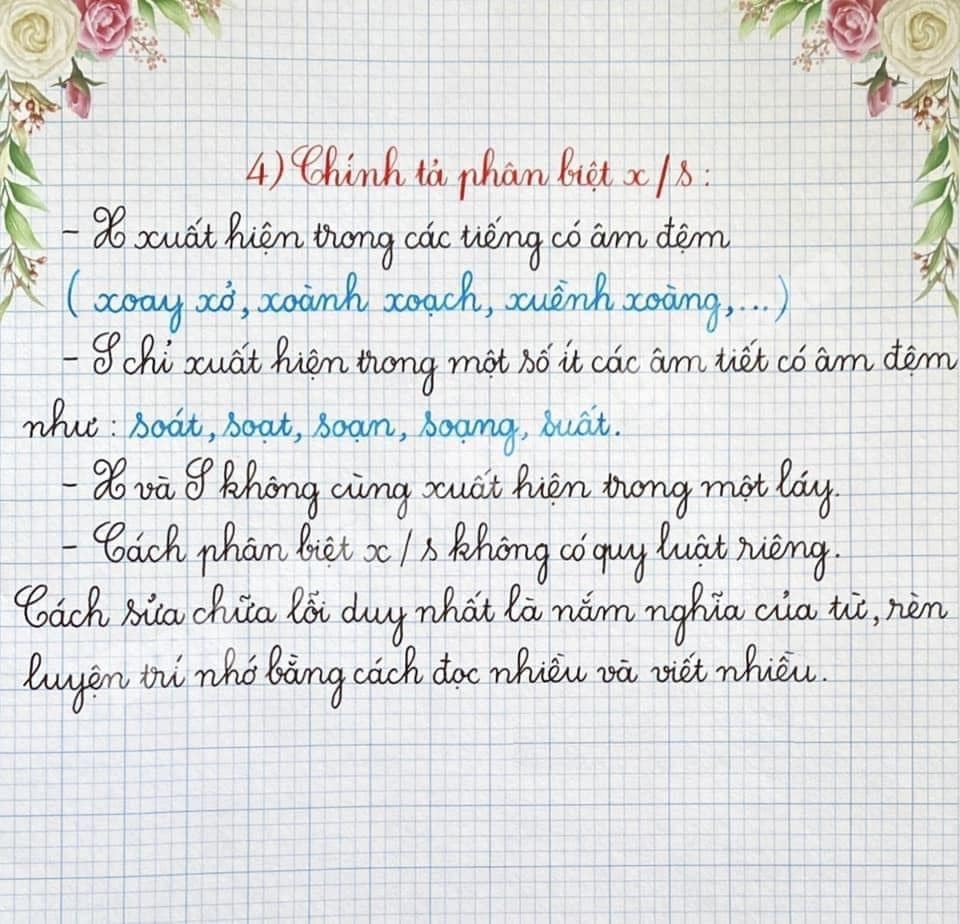 4) Chính tả phân biệt x / s :
- X xuất hiện trong các tiếng có âm đệm
( xoay xở, xoành xoạch, xuềnh xoàng,...)
- S chỉ xuất hiện trong một số ít các âm tiết có âm đệm
như : soát, soạt, soạn, soạng, suất.
- X và S không cùng xuất hiện trong một láy.
- Cách phân biệt x / s không có quy luật riêng.
Cách sửa chữa lỗi duy nhất là nắm nghĩa của từ, rèn
luyện trí nhớ bằng cách đọc nhiều và viết nhiều.